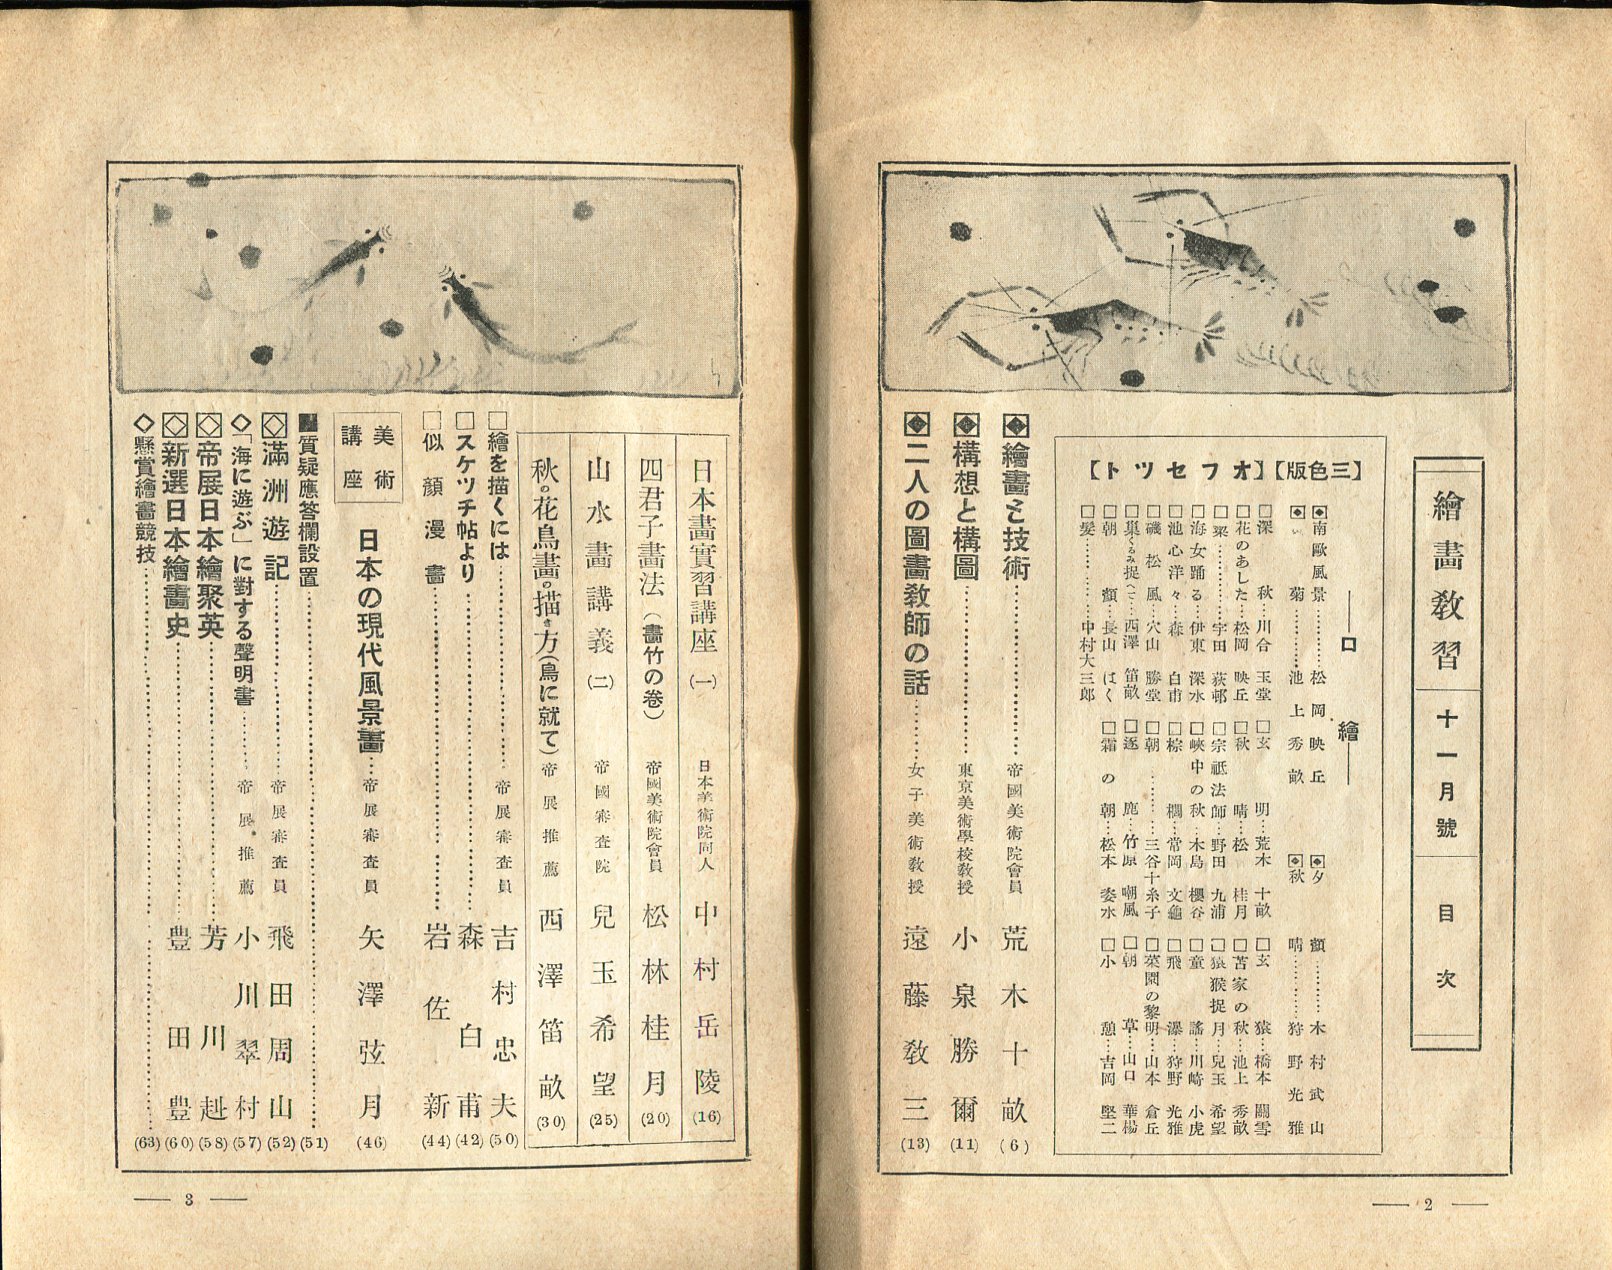 繪畫敎習 十一月號 目次
口繪
【三色版】【オフセツト】
南歐風景…………松岡映丘
夕顏…………木村武山
菊…………池上秀畝
秋晴…………狩野光雅
□深秋…川合玉堂 □玄明…荒木十畝 □玄猿…橋本關雪
□花のあした…松岡映丘 □秋晴…松林桂月 □苫家の秋…池上秀畝
□梁…………宇田荻邨 □宗祗法師…野田九浦 □猿猴捉月…兒玉希望
□海女踊る…伊東深水 □峽中の秋…木島櫻谷 □童謠…川崎小虎
□池心洋々…森白甫 □棕櫚…常岡文龜 □飛瀑…狩野光雅
□磯松風…穴山勝堂 □朝…………三谷十糸子 □菜園の黎明…山本倉丘
□巢くるみ捉へて…西澤笛畝 □逐鹿…竹原嘲風 □朝草…山口華楊
□朝顏…長山はく □霜の朝…松本姿水 □小憩…吉岡堅二
□髪…………中村大三郎
繪畫と技術…………帝國美術院會員 荒木十畝 (6)
構想と構圖…………東京美術學校敎授 小泉勝爾 (11)
二人の圖畫敎師の話…………女子美術敎授 遠藤敎三 (13)
2
日本畫實習講座(一) 日本美術院同人 中村岳陵 (16)
四君子畫法(畫竹の卷) 帝國美術院會員 松林桂月 (20)
山水畫講義(二) 帝國審査院 兒玉希望 (25)
秋の花鳥畫の描き方(鳥に就て) 帝展推薦 西澤笛畝 (30)
□繪を描くには…………帝展審査員 吉村忠夫 (50)
□スケツチ帖より…………森白甫 (42)
□似顏漫畫…………岩佐新 (44)
美術講座 日本の現代風景畫…帝展審査員 矢澤弦月 (46)
■質疑應答欄設置…………(51)
滿洲遊記…………帝展審査員 飛田周山 (52)
◇「海に遊ぶ」に對する聲明書…………帝展推薦 小川翠村 (57)
帝展日本繪聚英…………芳川赳 (58)
新選日本繪畫史…………豊田豊 (60)
◇懸賞繪畫競技…………(63)
3